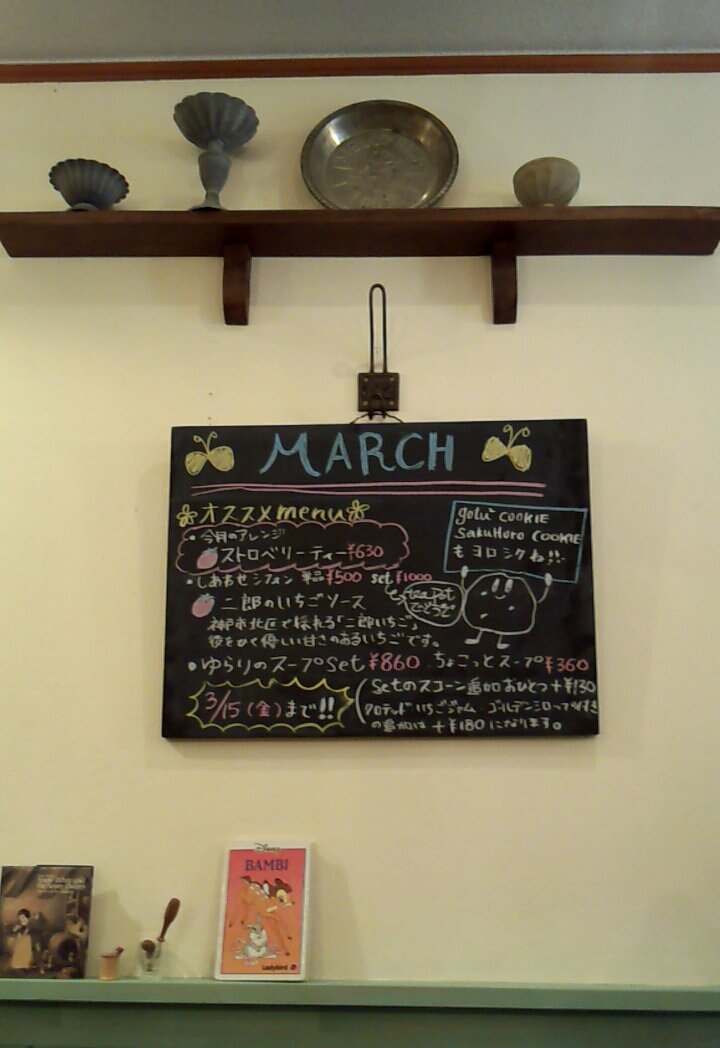 MARCH
オススメmenu
・今月のアレンジ
ストロベリーティー¥630
・しあわせシフォン 単品¥500 set ¥1000
tea Pot
でどうぞ
二郎のいちごソース
神戸市北区で採れる「二郎いちご」
優しい甘さのあるいちごです。
・ゆらりのスープset ¥860 ちょこっとスープ¥360
3/15(金)まで!!
setのスコーン追加おひとつ+¥130
クロテッド いちごジャム ゴールデンシロップ
の追加は +¥180になります。
gotu² COOKIE
SakuHoro COOKIE
もヨロシクね!!
Disney
BAMBI
Ladybird